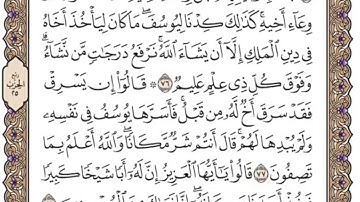 وِعَآءِ أَخِيهِ كَذَٰلِكَ كِدْنَا لِيُوسُفَ مَا كَانَ لِيَأْخُذَ أَخَاهُ
فِي دِينِ ٱلْمَلِكِ إِلَّآ أَن يَشَآءَ ٱللَّهُ نَرْفَعُ دَرَجَٰتٍ مَّن نَّشَآءُ
وَفَوْقَ كُلِّ ذِي عِلْمٍ عَلِيمٌ ٧٦ ۞ قَالُوٓا۟ إِن يَسْرِقْ
فَقَدْ سَرَقَ أَخٌ لَّهُۥ مِن قَبْلُ فَأَسَرَّهَا يُوسُفُ فِي نَفْسِهِۦ
وَلَمْ يُبْدِهَا لَهُمْ قَالَ أَنتُمْ شَرٌّ مَّكَانًا وَٱللَّهُ أَعْلَمُ بِمَا
تَصِفُونَ ٧٧ قَالُوا۟ يَٰٓأَيُّهَا ٱلْعَزِيزُ إِنَّ لَهُۥٓ أَبًا شَيْخًا كَبِيرًا
الحزب
٢٥